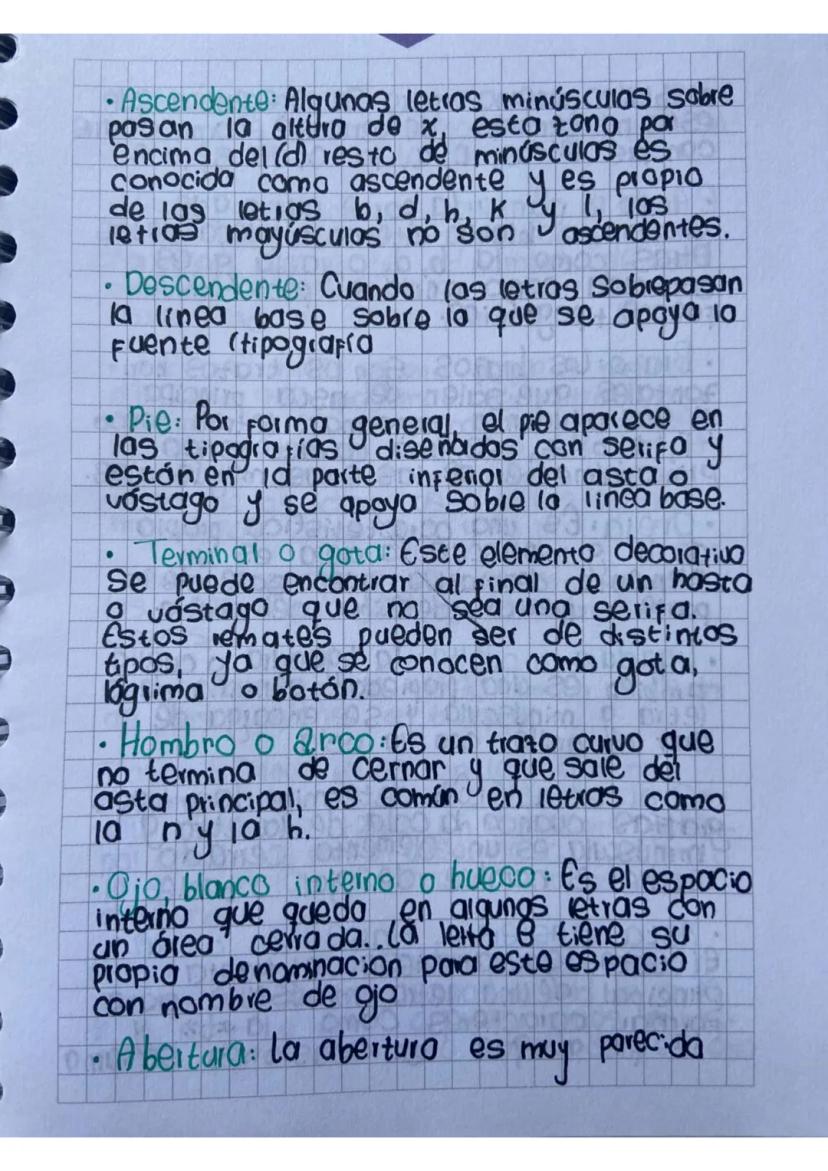 · Ascendente: Algunas letras minúsculas sobre
pasan la altura de x, esta zona por
encima del (d) resto de minúsculas es
conocida como ascendente y es propio
de las letras b, d, h, k y l, las
letras mayúsculas no son ascendentes.
· Descendente: Cuando las letras sobrepasan
la línea base sobre la que se apoya la
fuente (tipografía
· Pie: Por forma general, el pie aparece en
las tipografías diseñadas con serifa y
están en la parte inferior del asta o
vástago y se apoya sobre la línea base.
· Terminal o gota: Este elemento decorativo
se puede encontrar al final de un hasta
o vástago que no sea una serifa.
Estos remates pueden ser de distintos
tipos, ya que se conocen como gota,
lágrima o botón.
· Hombro o arco: Es un trazo curvo que
no termina de cerrar y que sale del
asta principal, es común en letras como
la n y la h.
· Ojo, blanco interno o hueco: Es el espacio
interno que queda en algunas letras con
un área cerrada.. La letra e tiene su
propia denominacion para este espacio
con nombre de ojo
· Abertura: la abertura es muy parecida